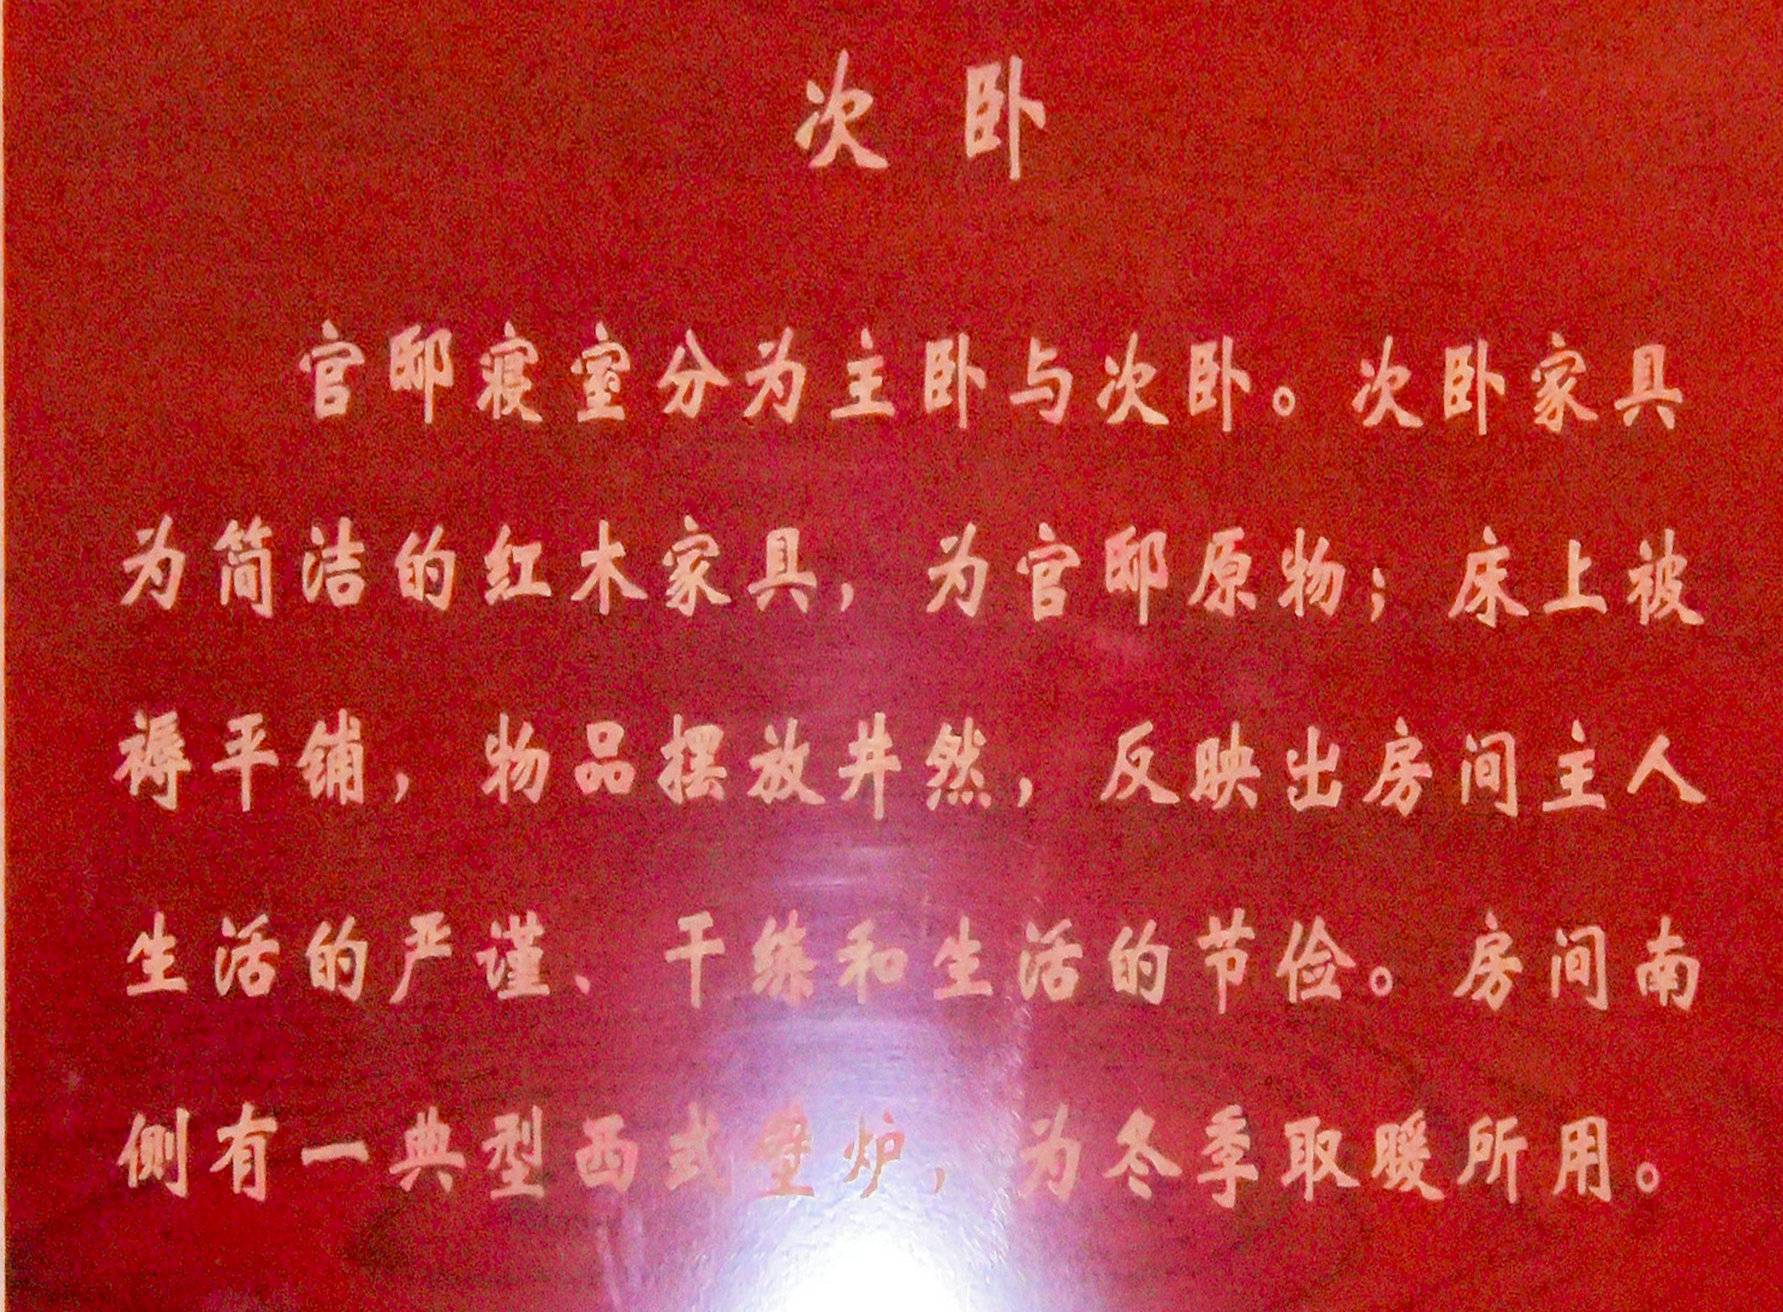 次卧
官邸寝室分为主卧与次卧。次卧家具
为简洁的红木家具，为官邸原物；床上被
褥平铺，物品摆放井然，反映出房间主人
生活的严谨、干练和生活的节俭。房间南
侧有一典型西式壁炉，为冬季取暖所用。